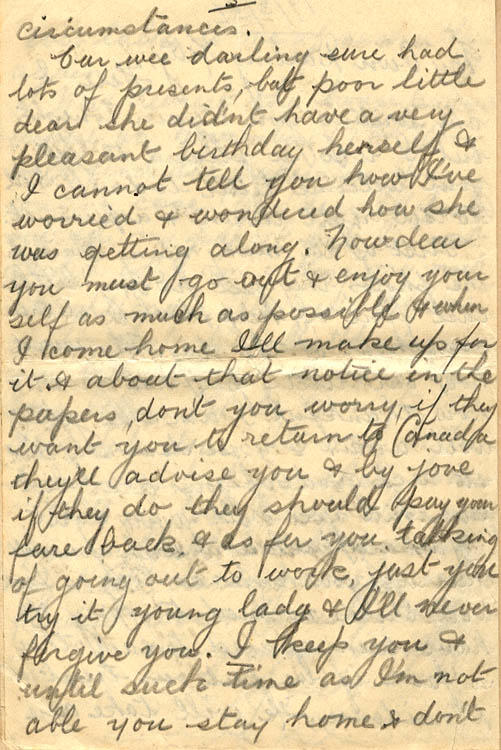 3
circumstances.
Our wee darling sure had
lots of presents, but poor little
dear she didn't have a very
pleasant birthday herself &
I cannot tell you how I've
worried & wondered how she
was getting along. Now dear
you must go out & enjoy your
self as much as possible & when
I come home I'll make up for
it. & about that notice in the
papers, don't you worry, if they
want you to return to Canada
they'll advise you & by jove
if they do they should pay your
fare back. & as for you talking
of going out to work, just you
try it young lady & I'll never
forgive you. I keep you &
until such time as I'm not
able you stay home & don't